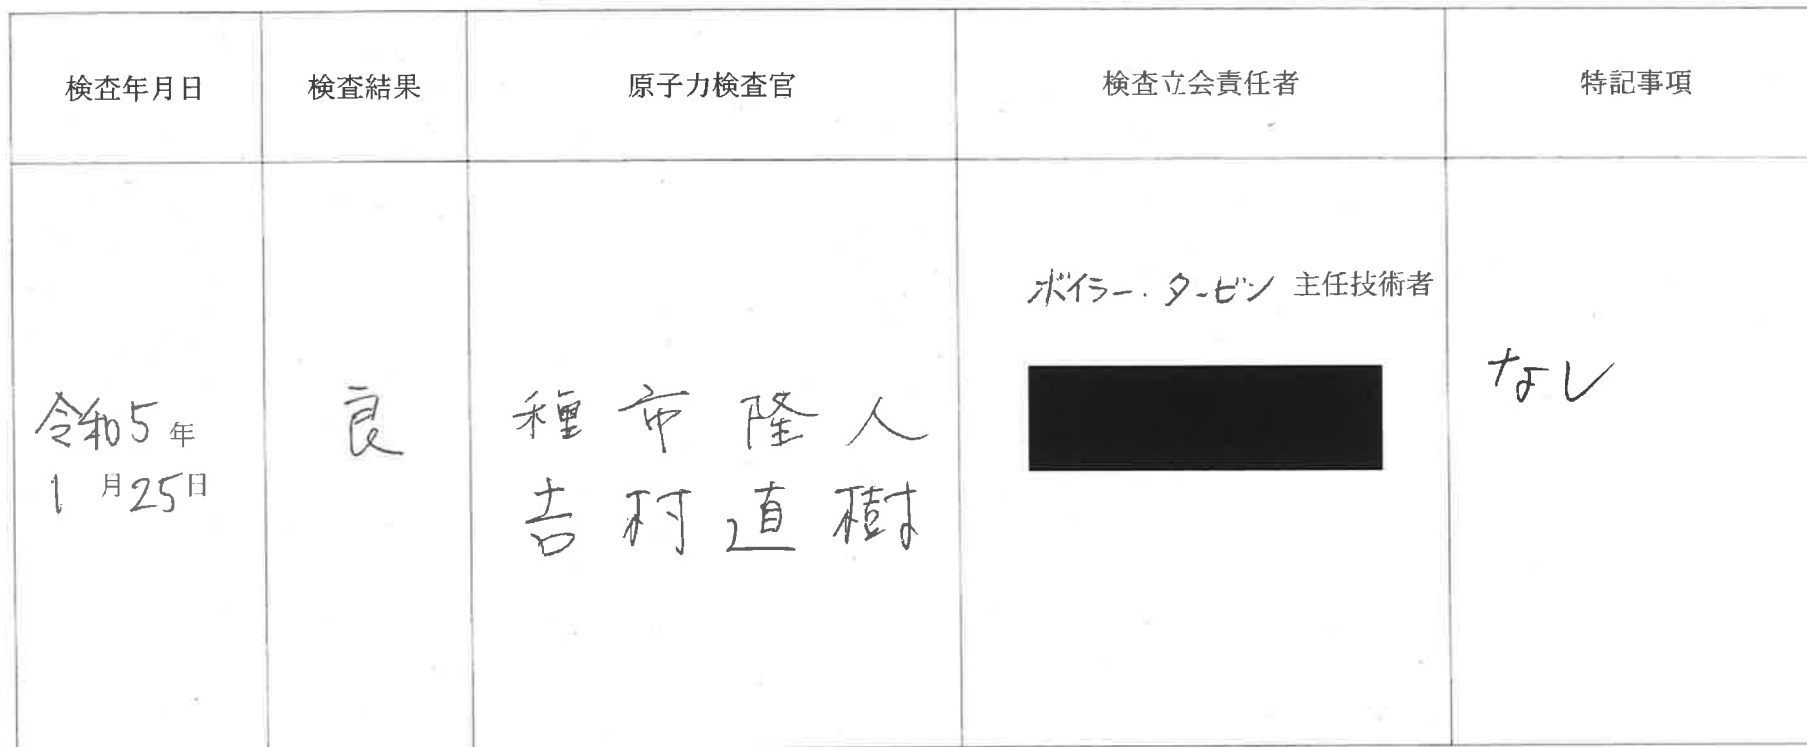 検査年月日 検査結果 原子力検査官 検査立会責任者 特記事項
令和5年
1月25日
良
種市隆人
吉村直樹
ボイラー・タービン 主任技術者
なし